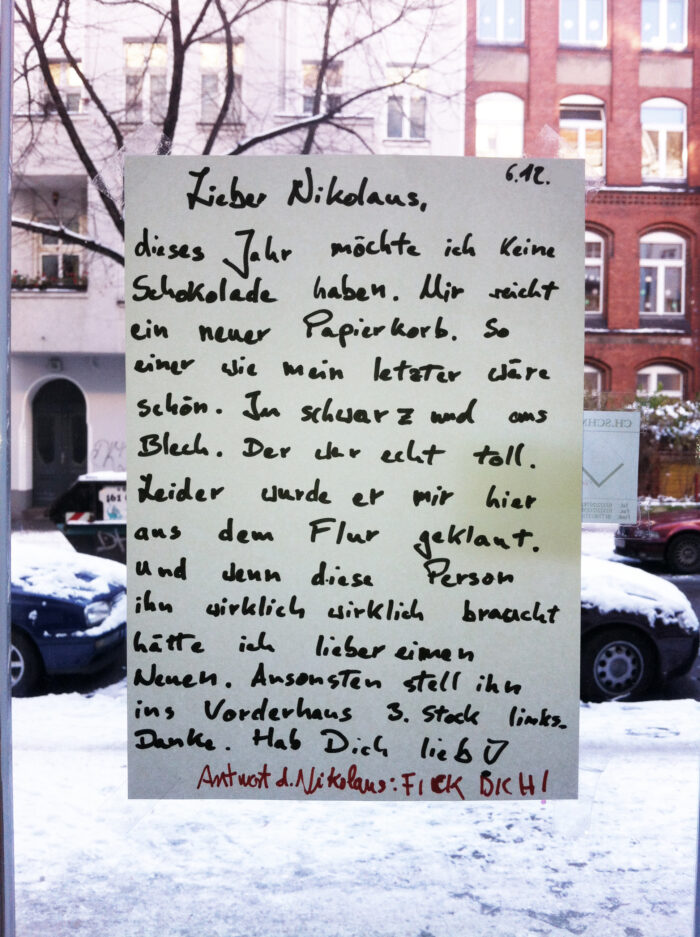 6.12.
Lieber Nikolaus,
dieses Jahr möchte ich keine
Schokolade haben. Mir reicht
ein neuer Papierkorb. So
einer wie mein letzter wäre
schön. In schwarz und aus
Blech. Der war echt toll.
Leider wurde er mir hier
aus dem Flur geklaut.
Und wenn diese Person
ihn wirklich wirklich braucht
hätte ich lieber einen
Neuen. Ansonsten stell ihn
ins Vorderhaus 3. Stock links.
Danke. Hab Dich lieb
Antwort d. Nikolaus: FICK DICH!
CH.SCHN